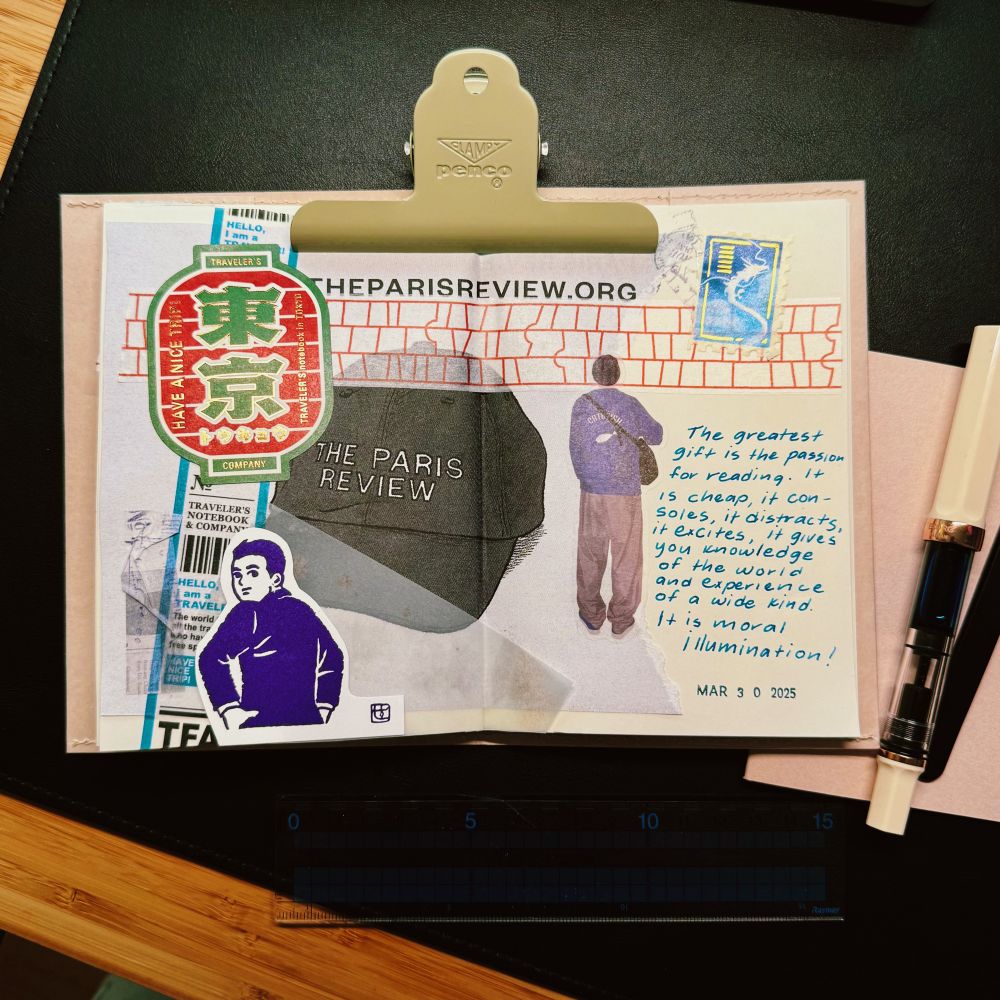 CLAMPY
penco
HELLO,
I am a
TRAVELER'S
東京
トウキョウ
HAVE A NICE TRIP!
TRAVELER'S notebook in Tokyo
COMPANY
THEPARISREVIEW.ORG
THE PARIS
REVIEW
№
TRAVELER'S
NOTEBOOK
& COMPANY
HELLO,
I am a
TRAVEL
The world
all the tra
who hav
free sp
HAVE
NICE
TRIP!
TEA
The greatest
gift is the passion
for reading. It
is cheap, it con-
soles, it distracts,
it excites, it gives
you knowledge
of the world
and experience
of a wide kind.
It is moral
illumination!
MAR 30 2025
0 5 10 15